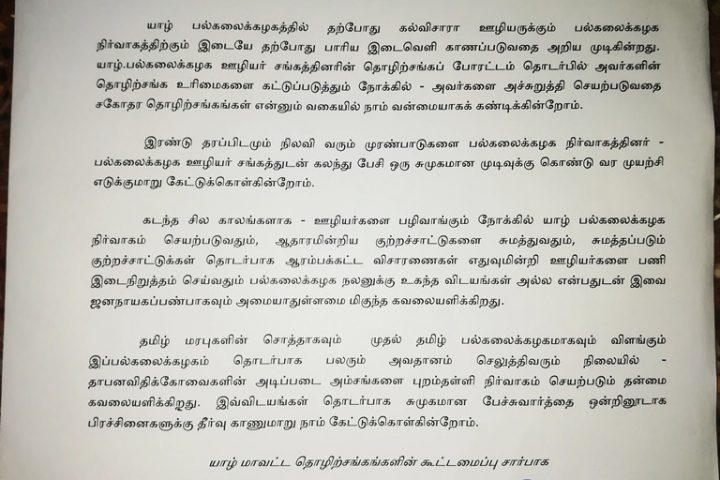 யாழ் பல்கலைக்கழகத்தில் தற்போது கல்விசாரா ஊழியருக்கும் பல்கலைக்கழக
நிர்வாகத்திற்கும் இடையே தற்போது பாரிய இடைவெளி காணப்படுவதை அறிய முடிகின்றது.
யாழ்.பல்கலைக்கழக ஊழியர் சங்கத்தினரின் தொழிற்சங்கப் போராட்டம் தொடர்பில் அவர்களின்
தொழிற்சங்க உரிமைகளை கட்டுப்படுத்தும் நோக்கில் - அவர்களை அச்சுறுத்தி செயற்படுவதை
சகோதர தொழிற்சங்கங்கள் என்னும் வகையில் நாம் வன்மையாகக் கண்டிக்கின்றோம்.
இரண்டு தரப்பிடமும் நிலவி வரும் முரண்பாடுகளை பல்கலைக்கழக நிர்வாகத்தினர் -
பல்கலைக்கழக ஊழியர் சங்கத்துடன் கலந்து பேசி ஒரு சுமுகமான முடிவுக்கு கொண்டு வர முயற்சி
எடுக்குமாறு கேட்டுக்கொள்கின்றோம்.
கடந்த சில காலங்களாக - ஊழியர்களை பழிவாங்கும் நோக்கில் யாழ் பல்கலைக்கழக
நிர்வாகம் செயற்படுவதும், ஆதாரமின்றிய குற்றச்சாட்டுகளை சுமத்துவதும், சுமத்தப்படும்
குற்றச்சாட்டுக்கள் தொடர்பாக ஆரம்பக்கட்ட விசாரணைகள் எதுவுமின்றி ஊழியர்களை பணி
இடைநிறுத்தம் செய்வதும் பல்கலைக்கழக நலனுக்கு உகந்த விடயங்கள் அல்ல என்பதுடன் இவை
ஜனநாயகப்பண்பாகவும் அமையாதுள்ளமை மிகுந்த கவலையளிக்கிறது.
தமிழ் மரபுகளின் சொத்தாகவும் முதல் தமிழ் பல்கலைக்கழகமாகவும் விளங்கும்
இப்பல்கலைக்கழகம் தொடர்பாக பலரும் அவதானம் செலுத்திவரும் நிலையில் -
தாபனவிதிக்கோவைகளின் அடிப்படை அம்சங்களை புறம்தள்ளி நிர்வாகம் செயற்படும் தன்மை
கவலையளிக்கிறது. இவ்விடயங்கள் தொடர்பாக சுமுகமான பேச்சுவார்த்தை ஒன்றினூடாக
பிரச்சினைகளுக்கு தீர்வு காணுமாறு நாம் கேட்டுக்கொள்கின்றோம்.
யாழ் மாவட்ட தொழிற்சங்கங்களின் கூட்டமைப்பு சார்பாக